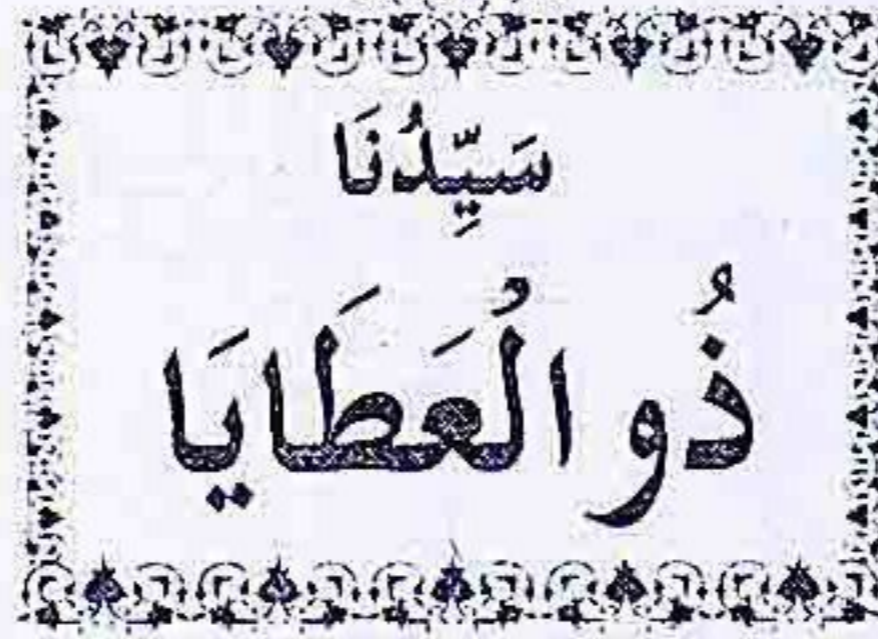 سَيِّدُنَا
ذُو الْعَطَايَا